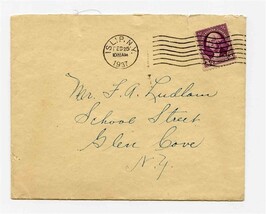 ISLIP, N.Y.
FEB
1937
Mr. F. A. Ludlam
School Street
Glen Cove
N.Y.